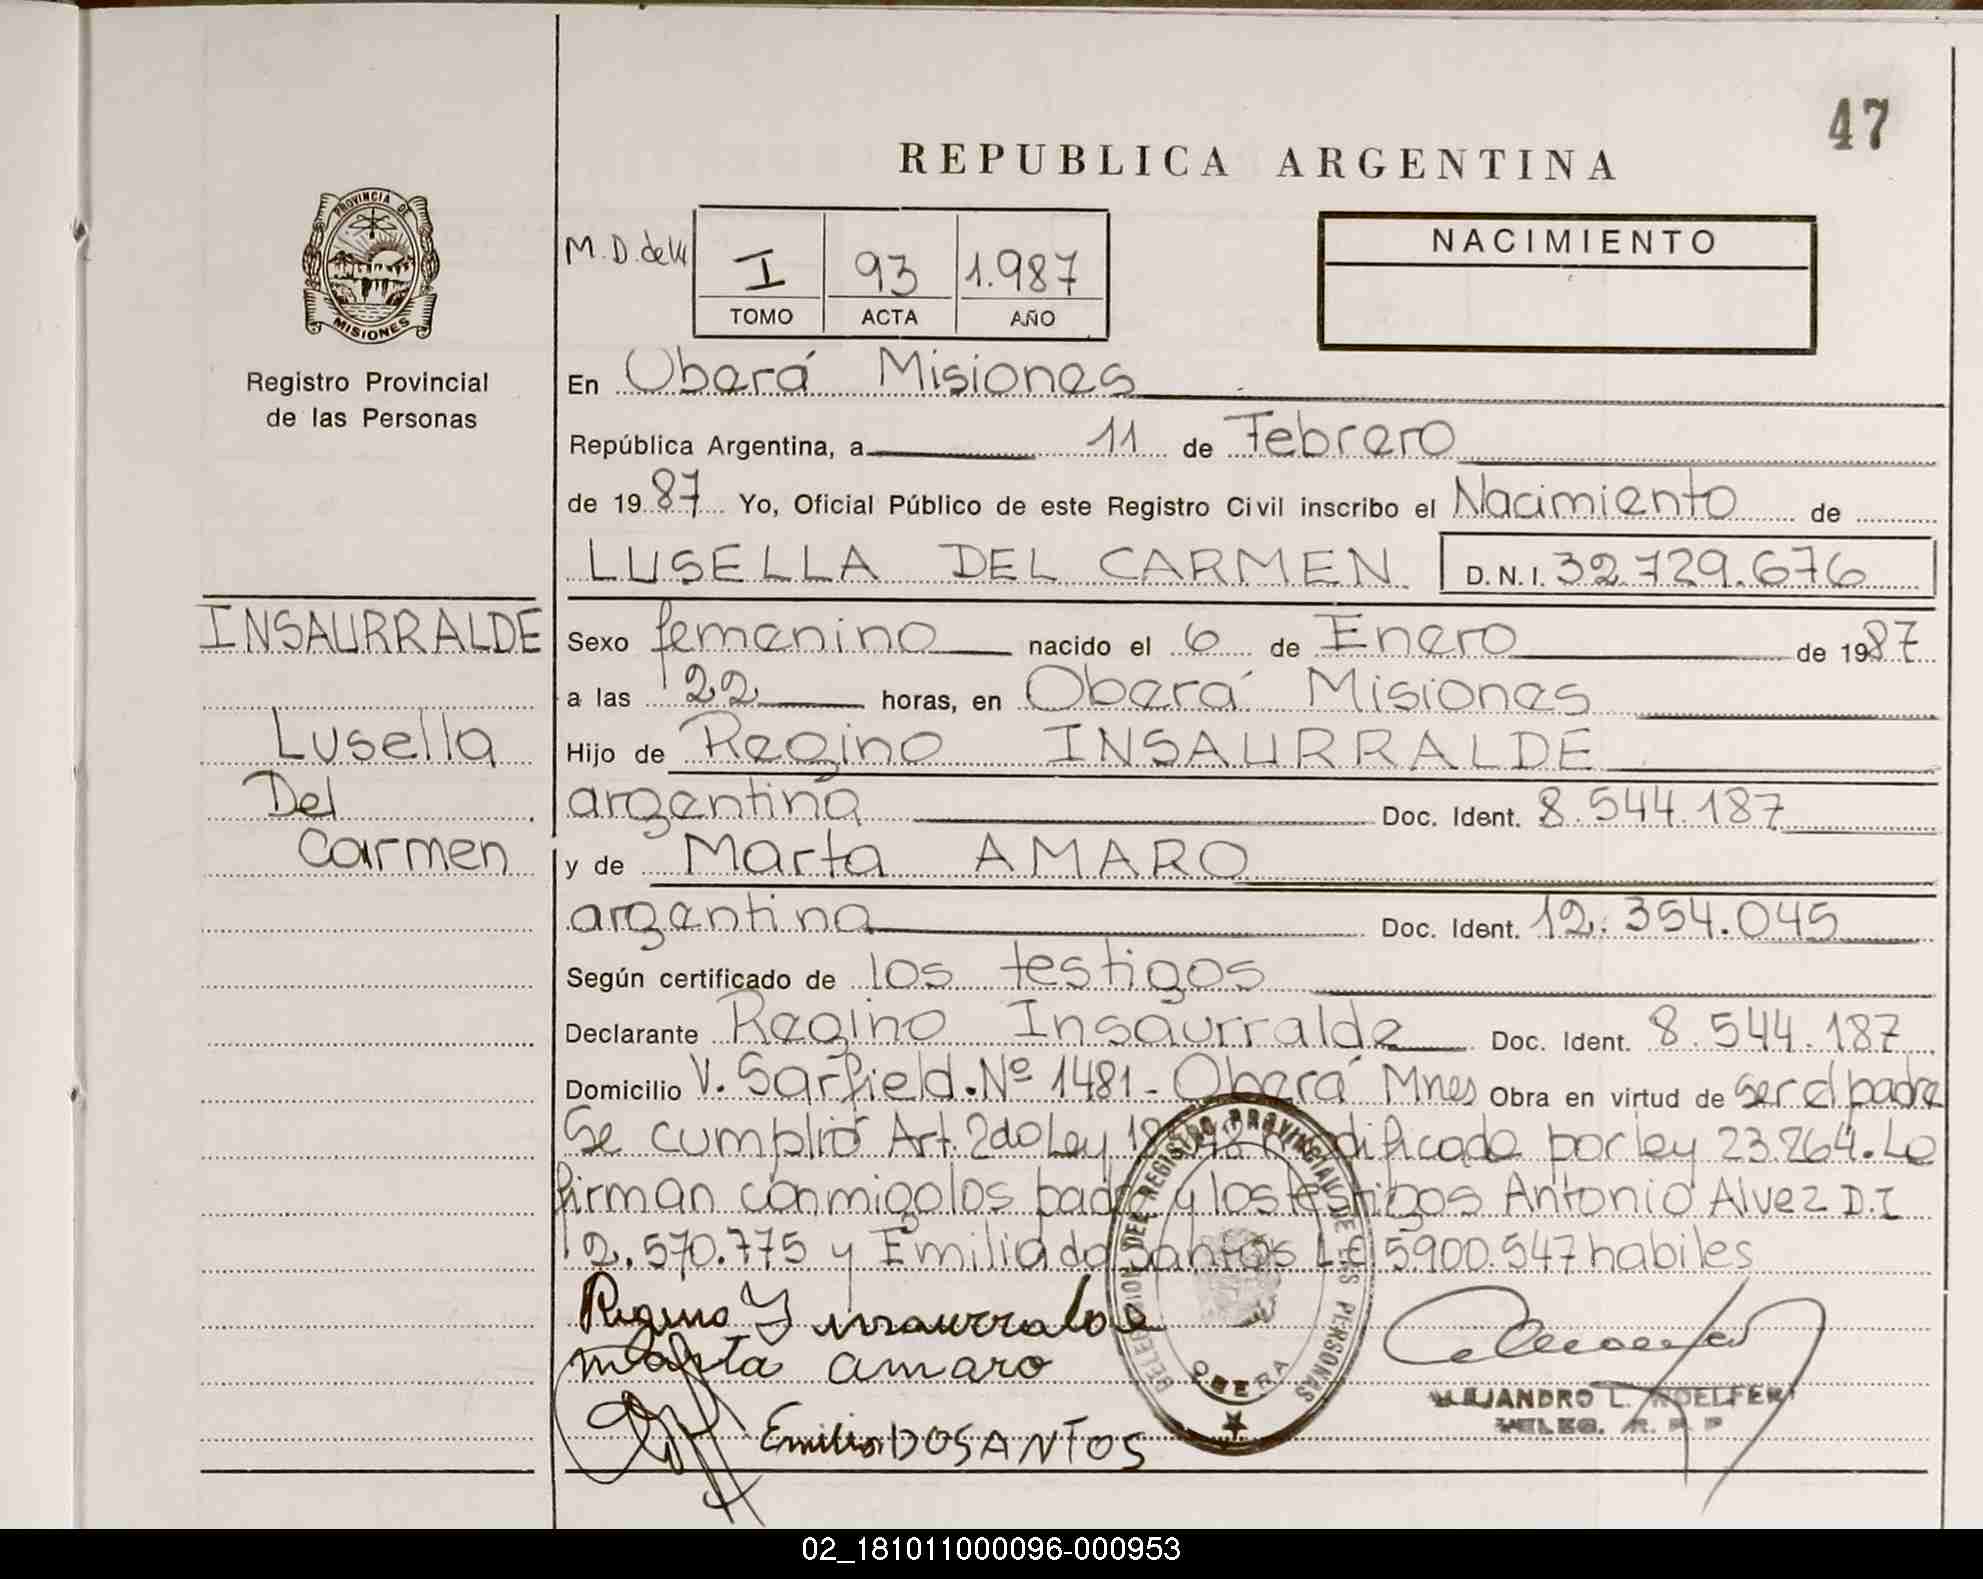 47
REPUBLICA ARGENTINA
PROVINCIA DE
MISIONES
Registro Provincial
de las Personas
M. D. de
I 93 1.987
TOMO ACTA AÑO
NACIMIENTO
En Oberá Misiones
República Argentina, a 11 de Febrero
de 1987 Yo, Oficial Público de este Registro Civil inscribo el Nacimiento de
LUSELLA DEL CARMEN D.N.I. 32.729.676
INSAURRALDE
Lusella
Del
Carmen
Sexo femenino nacido el 6 de Enero de 1987
a las 22 horas, en Oberá Misiones
Hijo de Regino INSAURRALDE
argentina Doc. Ident. 8.544.187
y de Marta AMARO
argentina Doc. Ident. 12.354.045
Según certificado de los testigos
Declarante Regino Insaurralde Doc. Ident. 8.544.187
Domicilio V. Sarfield. Nº 1481 - Oberá Mnes Obra en virtud de ser el padre
Se cumplió Art. 2do Ley modificada por ley 23.264. Lo
firman conmigo los y los testigos Antonio Alvez D.I
2.570.775 y Emilia do Santos L.E 5900.547 habiles
Regino I insaurralde
marta amaro
Emilia DOSANTOS
DELEGACION DEL REGISTRO PROVINCIAL DE LAS PERSONAS
OBERA
ALEJANDRO L.
DELEG. R. P. P
02_181011000096-000953